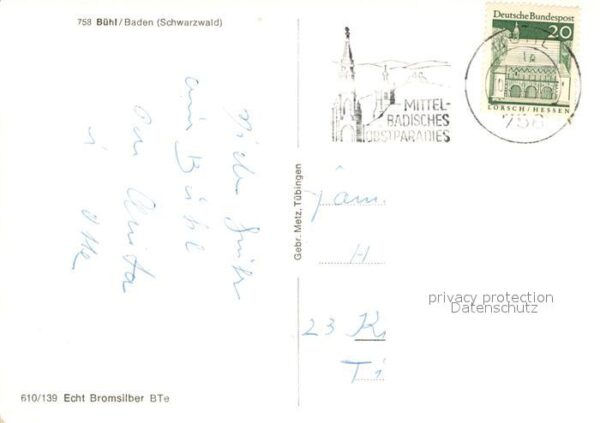 758 Bühl/Baden (Schwarzwald)
Deutsche Bundespost
20
LORSCH/HESSEN
758
MITTEL-
BADISCHES
OBSTPARADIES
aus Bühl
Anita
Gebr. Metz, Tübingen
Fam.
H
23 K
Ti
privacy protection
Datenschutz
610/139 Echt Bromsilber BTe